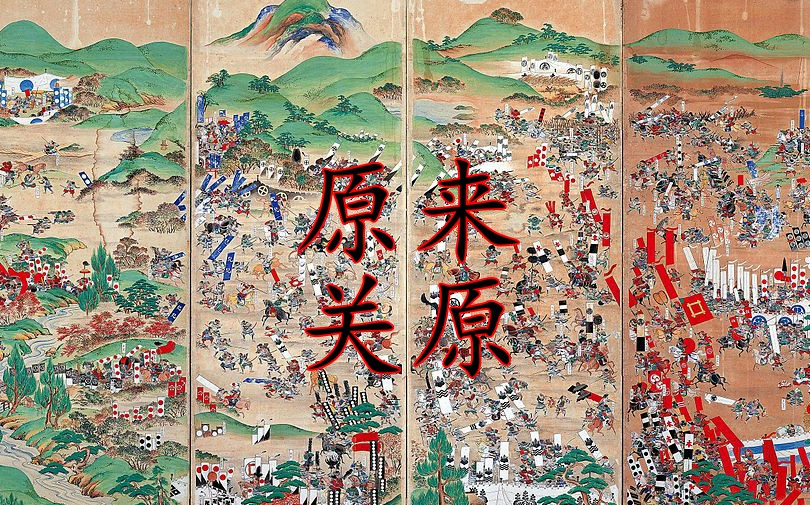 原来
关原